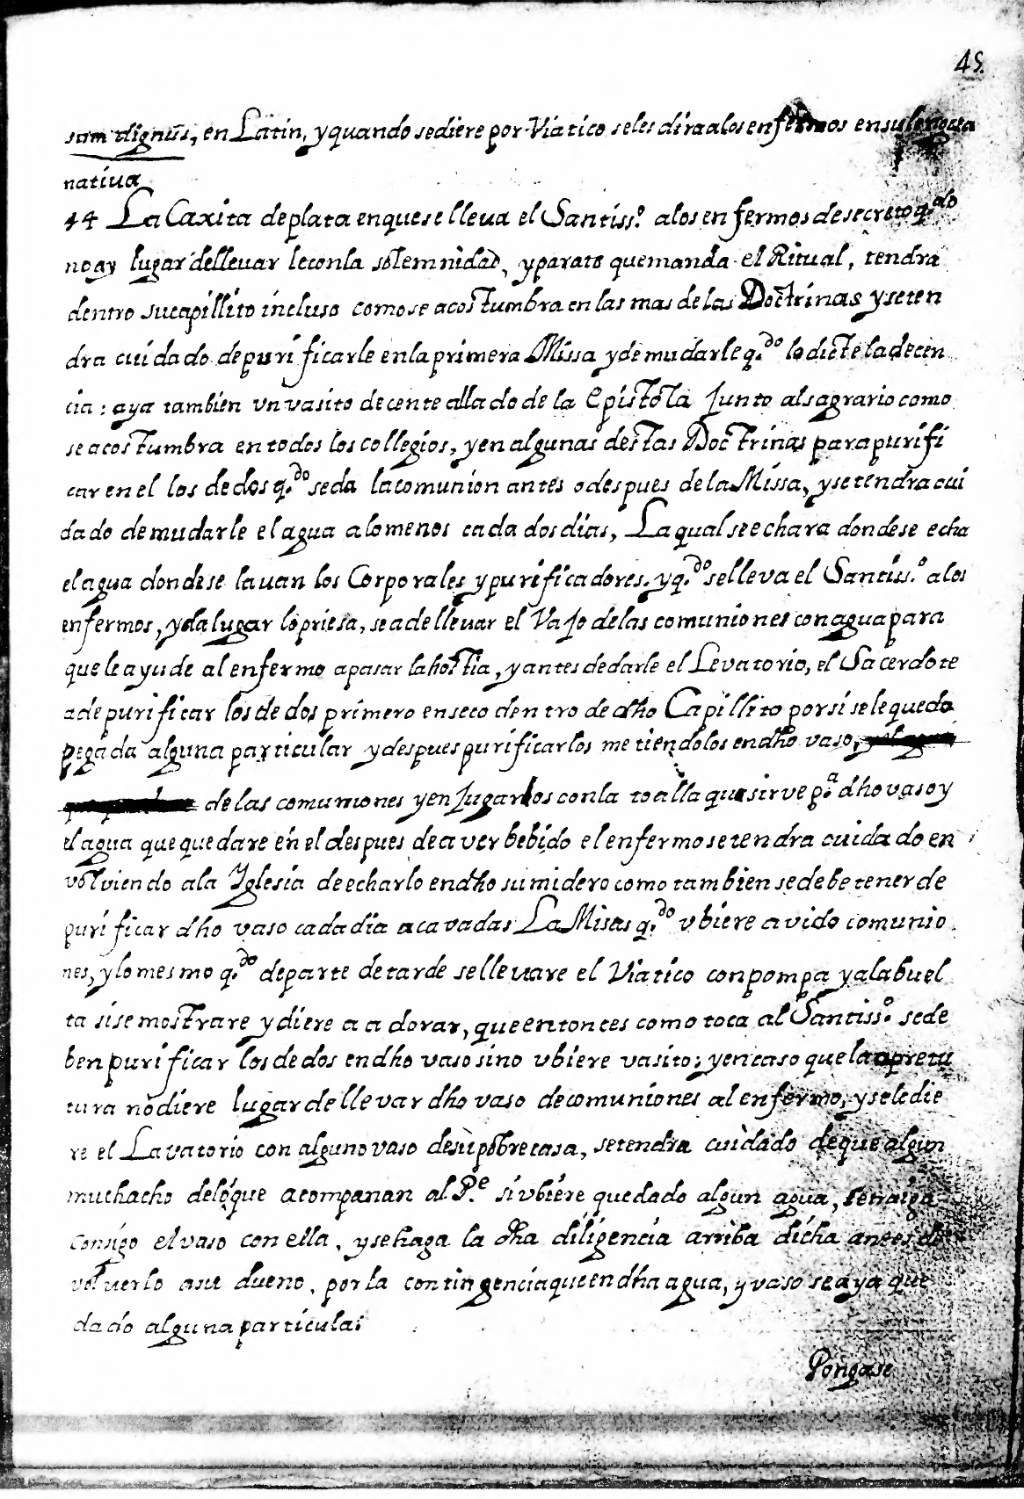 45.
sum dignus, en Latin, y quando se diere por Viatico se les dira a los enfermos en su lengua
nativa
44 La Caxita de plata en que se lleva el Santiss.º a los enfermos de secreto q.do
no ay lugar dellevar le con la solemnidad, y parato que manda el Ritual, tendra
dentro su capillito incluso como se acostumbra en las mas de las Doctrinas y se ten
dra cuidado de purificarle en la primera Missa y de mudarle q.do lo dicte la decen
cia: aya tambien un vasito decente allado de la Epistola Junto al sagrario como
se acostumbra en todos los collegios, y en algunas destas Doctrinas para purifi
car en el los dedos q.do se da la comunion antes o despues de la Missa, y se tendra cui
dado de mudarle el agua a lo menos cada dos dias, La qual se echara donde se echa
el agua donde se lauan los Corporales y purificadores. y q.do se lleva el Santiss.º a los
enfermos, y da lugar lo priesa, se a de llevar el Vaso de las comuniones con agua para
que le ayude al enfermo a pasar la hostia, y antes de darle el Levatorio, el Sacerdote
a de purificar los dedos primero en seco dentro de dho Capillito por si se le quedo
pegada alguna particular y despues purificarlos metiendolos en dho vaso,
de las comuniones y enjugarlos con la toalla que sirve p.a dho vaso y
el agua que quedare en el despues de aver bebido el enfermo se tendra cuidado en
volviendo a la Yglesia de echarlo en dho sumidero como tambien se debe tener de
purificar dho vaso cada dia acavadas La Misas q.do ubiere avido comunio
nes, y lo mesmo q.do de parte de tarde se llevare el Viatico con pompa y a la buel
ta si se mostrare y diere a adorar, que entonces como toca al Santiss.º se de
ben purificar los dedos en dho vaso sino ubiere vasito; y en caso que la apretu
tura no diere lugar de llevar dho vaso de comuniones al enfermo, y se le die
re el Lavatorio con alguno vaso de su pobre casa, se tendra cuidado de que algun
muchacho de lo que acompanan al P.e si ubiere quedado algun agua, se traiga
consigo el vaso con ella, y se haga la dha diligencia arriba dicha antes de
volverlo a su dueno, por la contingencia que en dha agua, y vaso se aya que
dado alguna particula:
Pongase